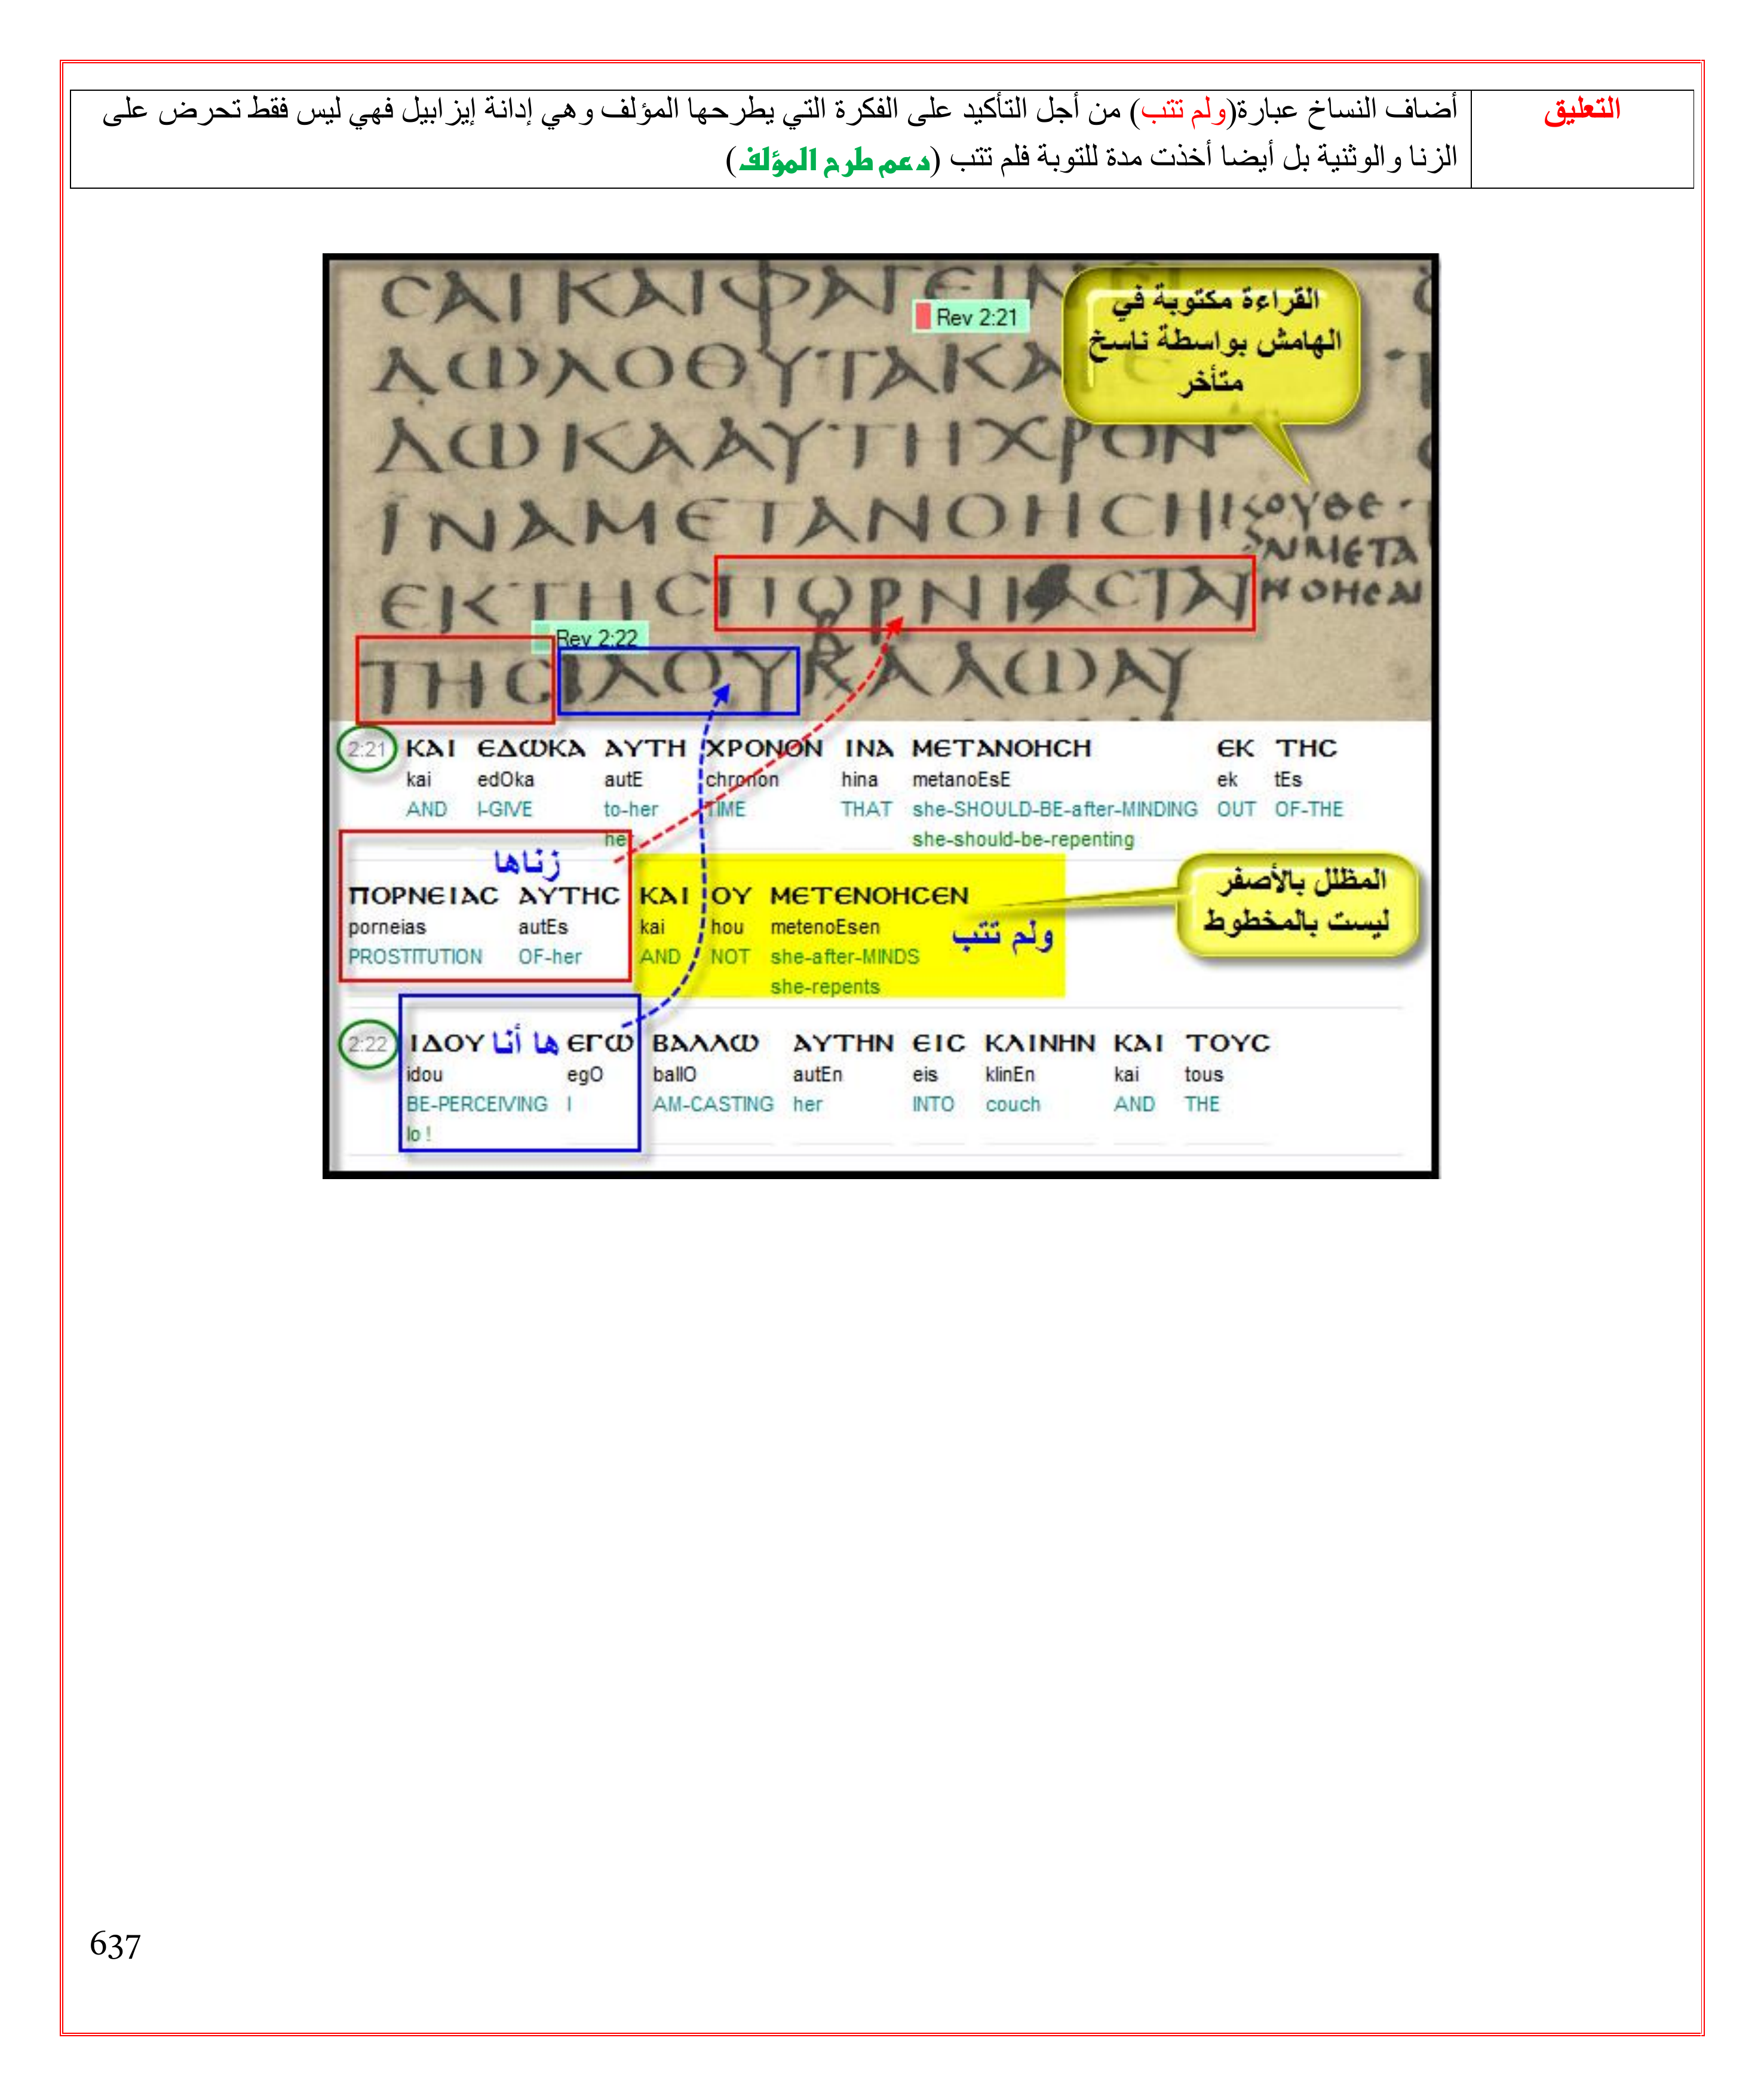 التعليق
أضاف النساخ عبارة(ولم تتب) من أجل التأكيد على الفكرة التي يطرحها المؤلف وهي إدانة إيزابيل فهي ليس فقط تحرض على
الزنا والوثنية بل أيضا أخذت مدة للتوبة فلم تتب (دعم طرح المؤلف)
ϹΑΙΚΑΙΦΑΓΕΙΝ
Rev 2:21
القراءة مكتوبة في
الهامش بواسطة ناسخ
متأخر
ΔΩΛΟΘΥΤΑΚΑ
ΔΩΚΑΑΥΤΗΧΡΟΝ
ΪΝΑΜΕΤΑΝΟΗϹΗ
ΟΥΘΕ
ΝΜΕΤΑ
ΝΟΗϹΑΙ
ΕΚΤΗϹΠΟΡΝΙΑϹΤΑΥ
Rev 2:22
ΤΗϹΙΔΟΥΒΑΛΩΑΥ
2:21 ΚΑΙ ΕΔΩΚΑ ΑΥΤΗ ΧΡΟΝΟΝ ΙΝΑ ΜΕΤΑΝΟΗϹΗ ΕΚ ΤΗϹ
kai edOka autE chronon hina metanoEsE ek tEs
AND I-GIVE to-her TIME THAT she-SHOULD-BE-after-MINDING OUT OF-THE
her she-should-be-repenting
زناها
ΠΟΡΝΕΙΑϹ ΑΥΤΗϹ ΚΑΙ ΟΥ ΜΕΤΕΝΟΗϹΕΝ
porneias autEs kai hou metenoEsen
PROSTITUTION OF-her AND NOT she-after-MINDS
she-repents
ولم تتب
المظلل بالأصفر
ليست بالمخطوط
2:22 ΙΔΟΥ ها أنا ΕΓΩ ΒΑΛΛΩ ΑΥΤΗΝ ΕΙϹ ΚΛΙΝΗΝ ΚΑΙ ΤΟΥϹ
idou egO ballO autEn eis klinEn kai tous
BE-PERCEIVING I AM-CASTING her INTO couch AND THE
lo !
637